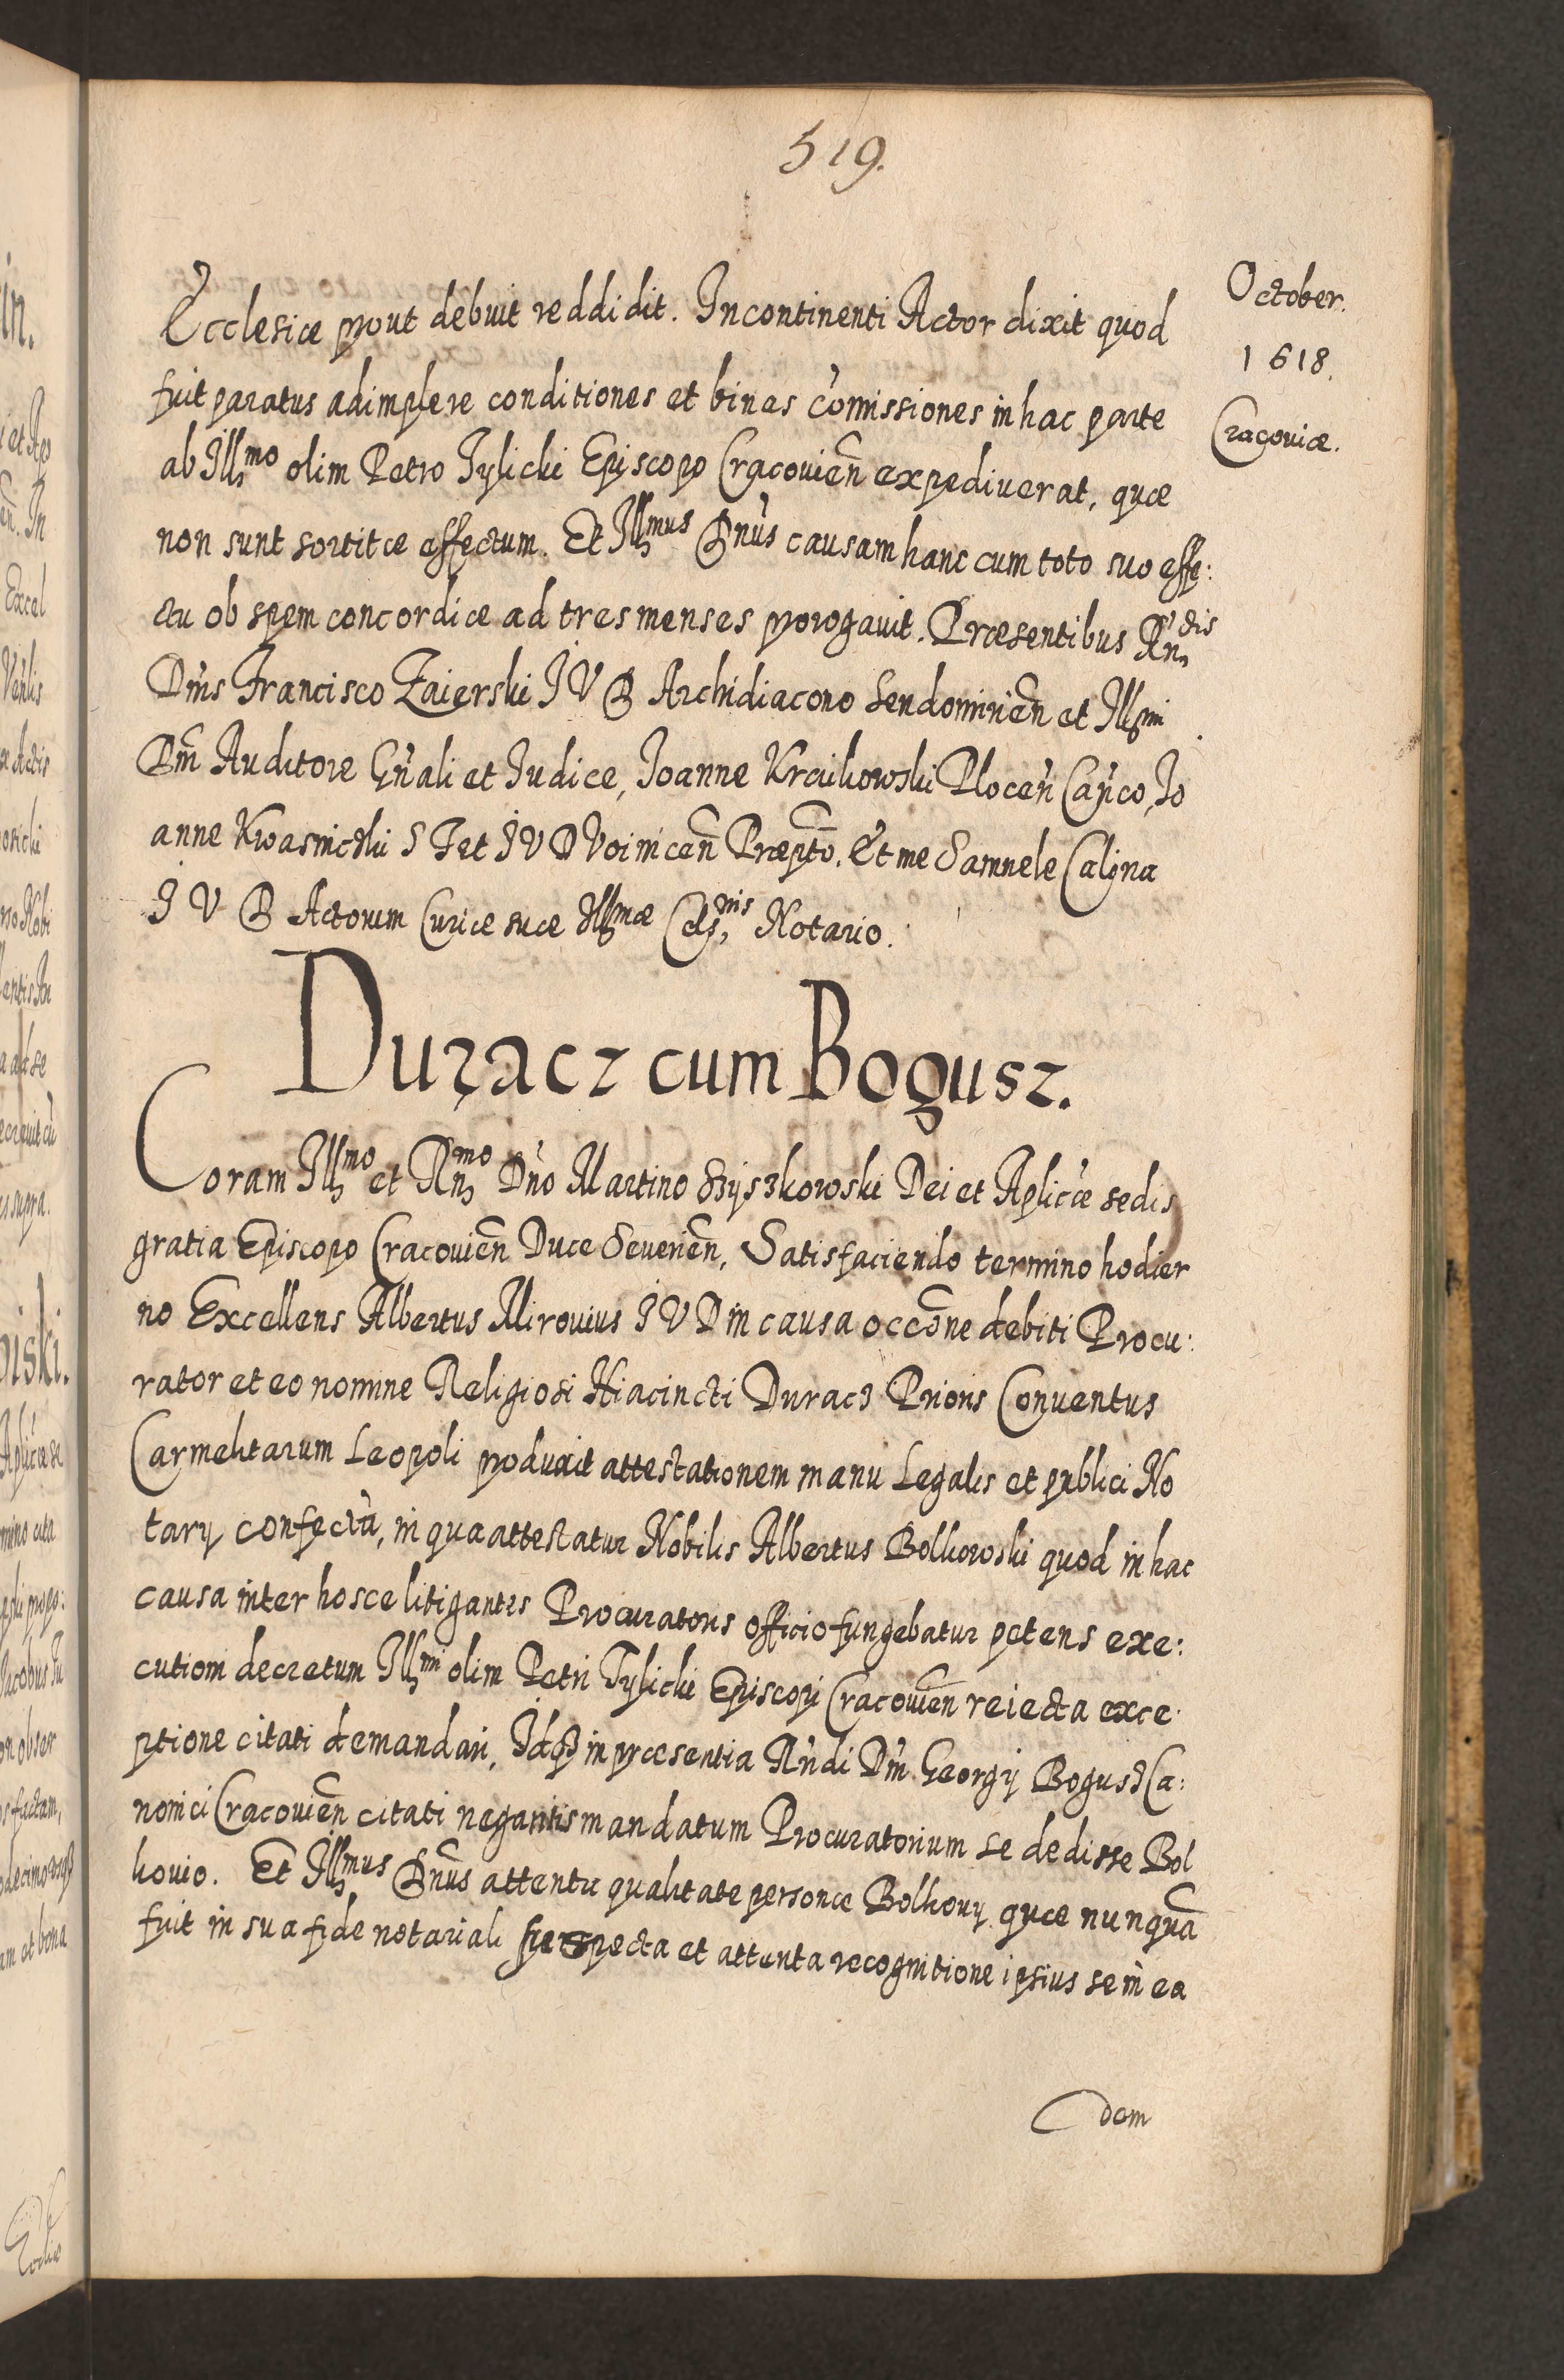 519.
October.
1618.
Cracoviæ.
Ecclesiæ prout debuit reddidit. Incontinenti Actor dixit quod
fuit paratus adimplere conditiones et binas com̃issiones in hac parte
ab Illmo olim Petro Tylicki Episcopo Cracovien̄ expediverat, quæ
non sunt sortitæ effectum. Et Illmus Dnus causam hanc cum toto suo effe:
ctu ob spem concordiæ ad tres menses prorogavit. Præsentibus Rndis
Dnis Francisco Zaierski I V D Archidiacono Sendomirien̄ et Illmi
Dni Auditore Gnali et Iudice, Ioanne Kraikowski Plocen̄ Canco, Io
anne Kwasnicki S T et I V D Voinicen̄ Præpto. Et me Samuele Calina
I V D Actorum Curiæ suæ Illmæ Celsnis Notario.
Duracz cum Bogusz.
Coram Illmo et Rnmo Dno Martino Szyszkowski Dei et Aplicæ sedis
gratia Episcopo Cracovien̄ Duce Severien̄, Satisfaciendo termino hodier
no Excellens Albertus Mirovius I V D in causa occōne debiti Procu:
rator et eo nomine Religiosi Hiacincti Duracz Prioris Conventus
Carmelitarum Leopoli produxit attestationem manu Legalis et publici No
tarij confectã, in qua attestatur Nobilis Albertus Bolkowski quod in hac
causa inter hosce litigantes Procuratoris officio fungebatur petens exe:
cutioni decretum Illmi olim Petri Tylicki Episcopi Cracovien̄ reiecta exce:
ptione citati demandari. Idqȝ in præsentia Rndi Dni Georgij Bogusz Ca:
nonici Cracovien̄ citati negantis mandatum Procuratorium se dedisse Bol
kovio. Et Illmus Dnus attenta qualitate personæ Bolkovij quæ nunquã
fuit in sua fide notariali suspecta et attenta recognitione ipsius se in ea
dem